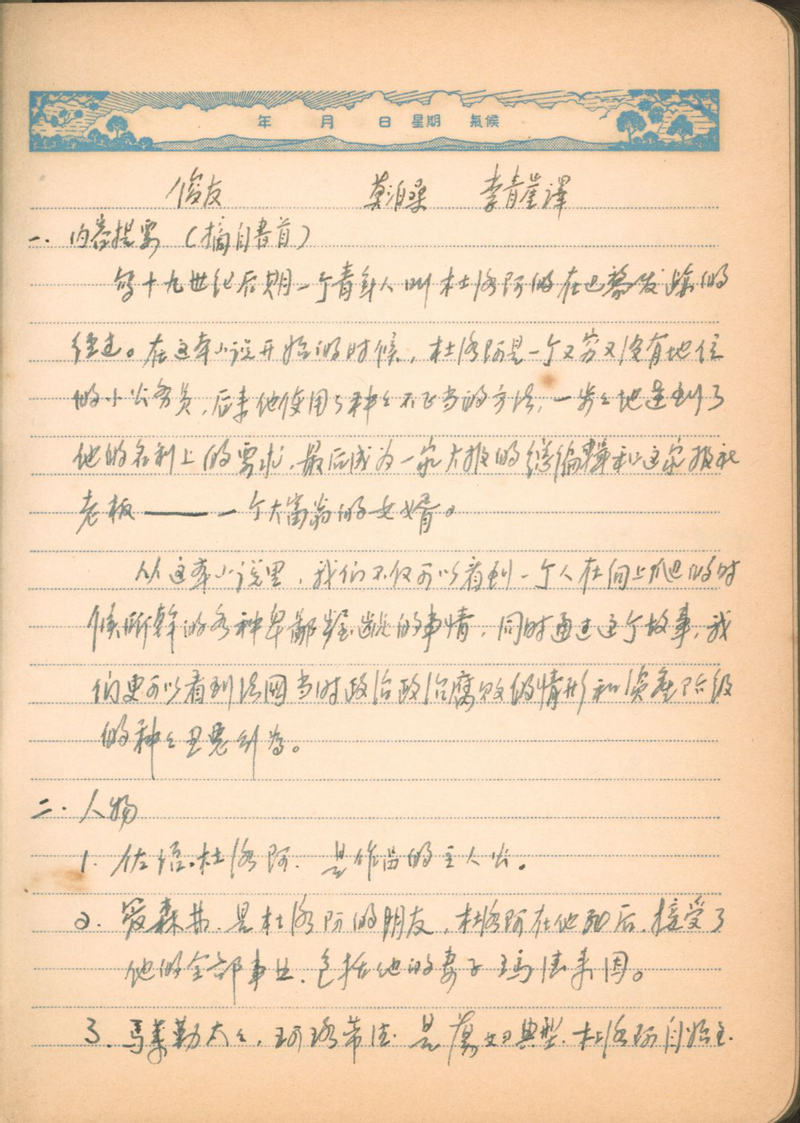 年 月 日 星期 氣候
俊友 莫泊桑 李青崖譯
一. 内容提要（摘自書首）
写十九世纪后期一个青年人叫杜洛阿的在巴黎发迹的
经过。在这本小说开始的时候，杜洛阿是一个又穷又没有地位
的小公务员，后来他使用了种々不正当的方法，一步々地达到了
他的名利上的要求，最后成为一家大报的总编輯和这家报社
老板——一个大富翁的女婿。
从这本小说里，我们不仅可以看到一个人在向上爬的时
候所幹的各种卑鄙龌龊的事情，同时通过这个故事，我
们更可以看到法国当时政治政治腐败的情形和资产阶级
的种々丑恶行为。
二. 人物
1. 佐治.杜洛阿. 是作品的主人公。
2. 爱森林. 是杜洛阿的朋友，杜洛阿在他死后，接受了
他的全部事业，包括他的妻子玛德来因。
3. 马莱勒太々，珂珞蒂德 是荡妇典型，杜洛阿自始至